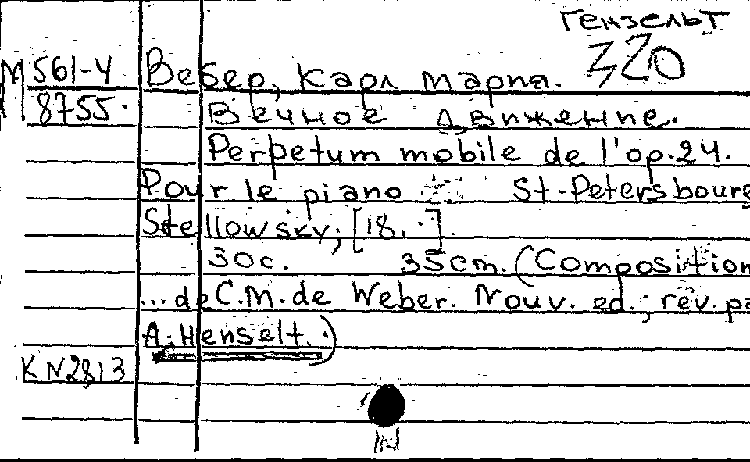 Гензельт
320
М 561-4 Вебер, Карл Мария.
8755. Вечное движение.
Perpetum mobile de l'op.24.
Pour le piano St-Petersbourg
Stellowsky, [18. .]
30c. 35cm. (Composition
...de C.M. de Weber. Nouv. ed.; rev. pa
A. Henselt.)
KN2813